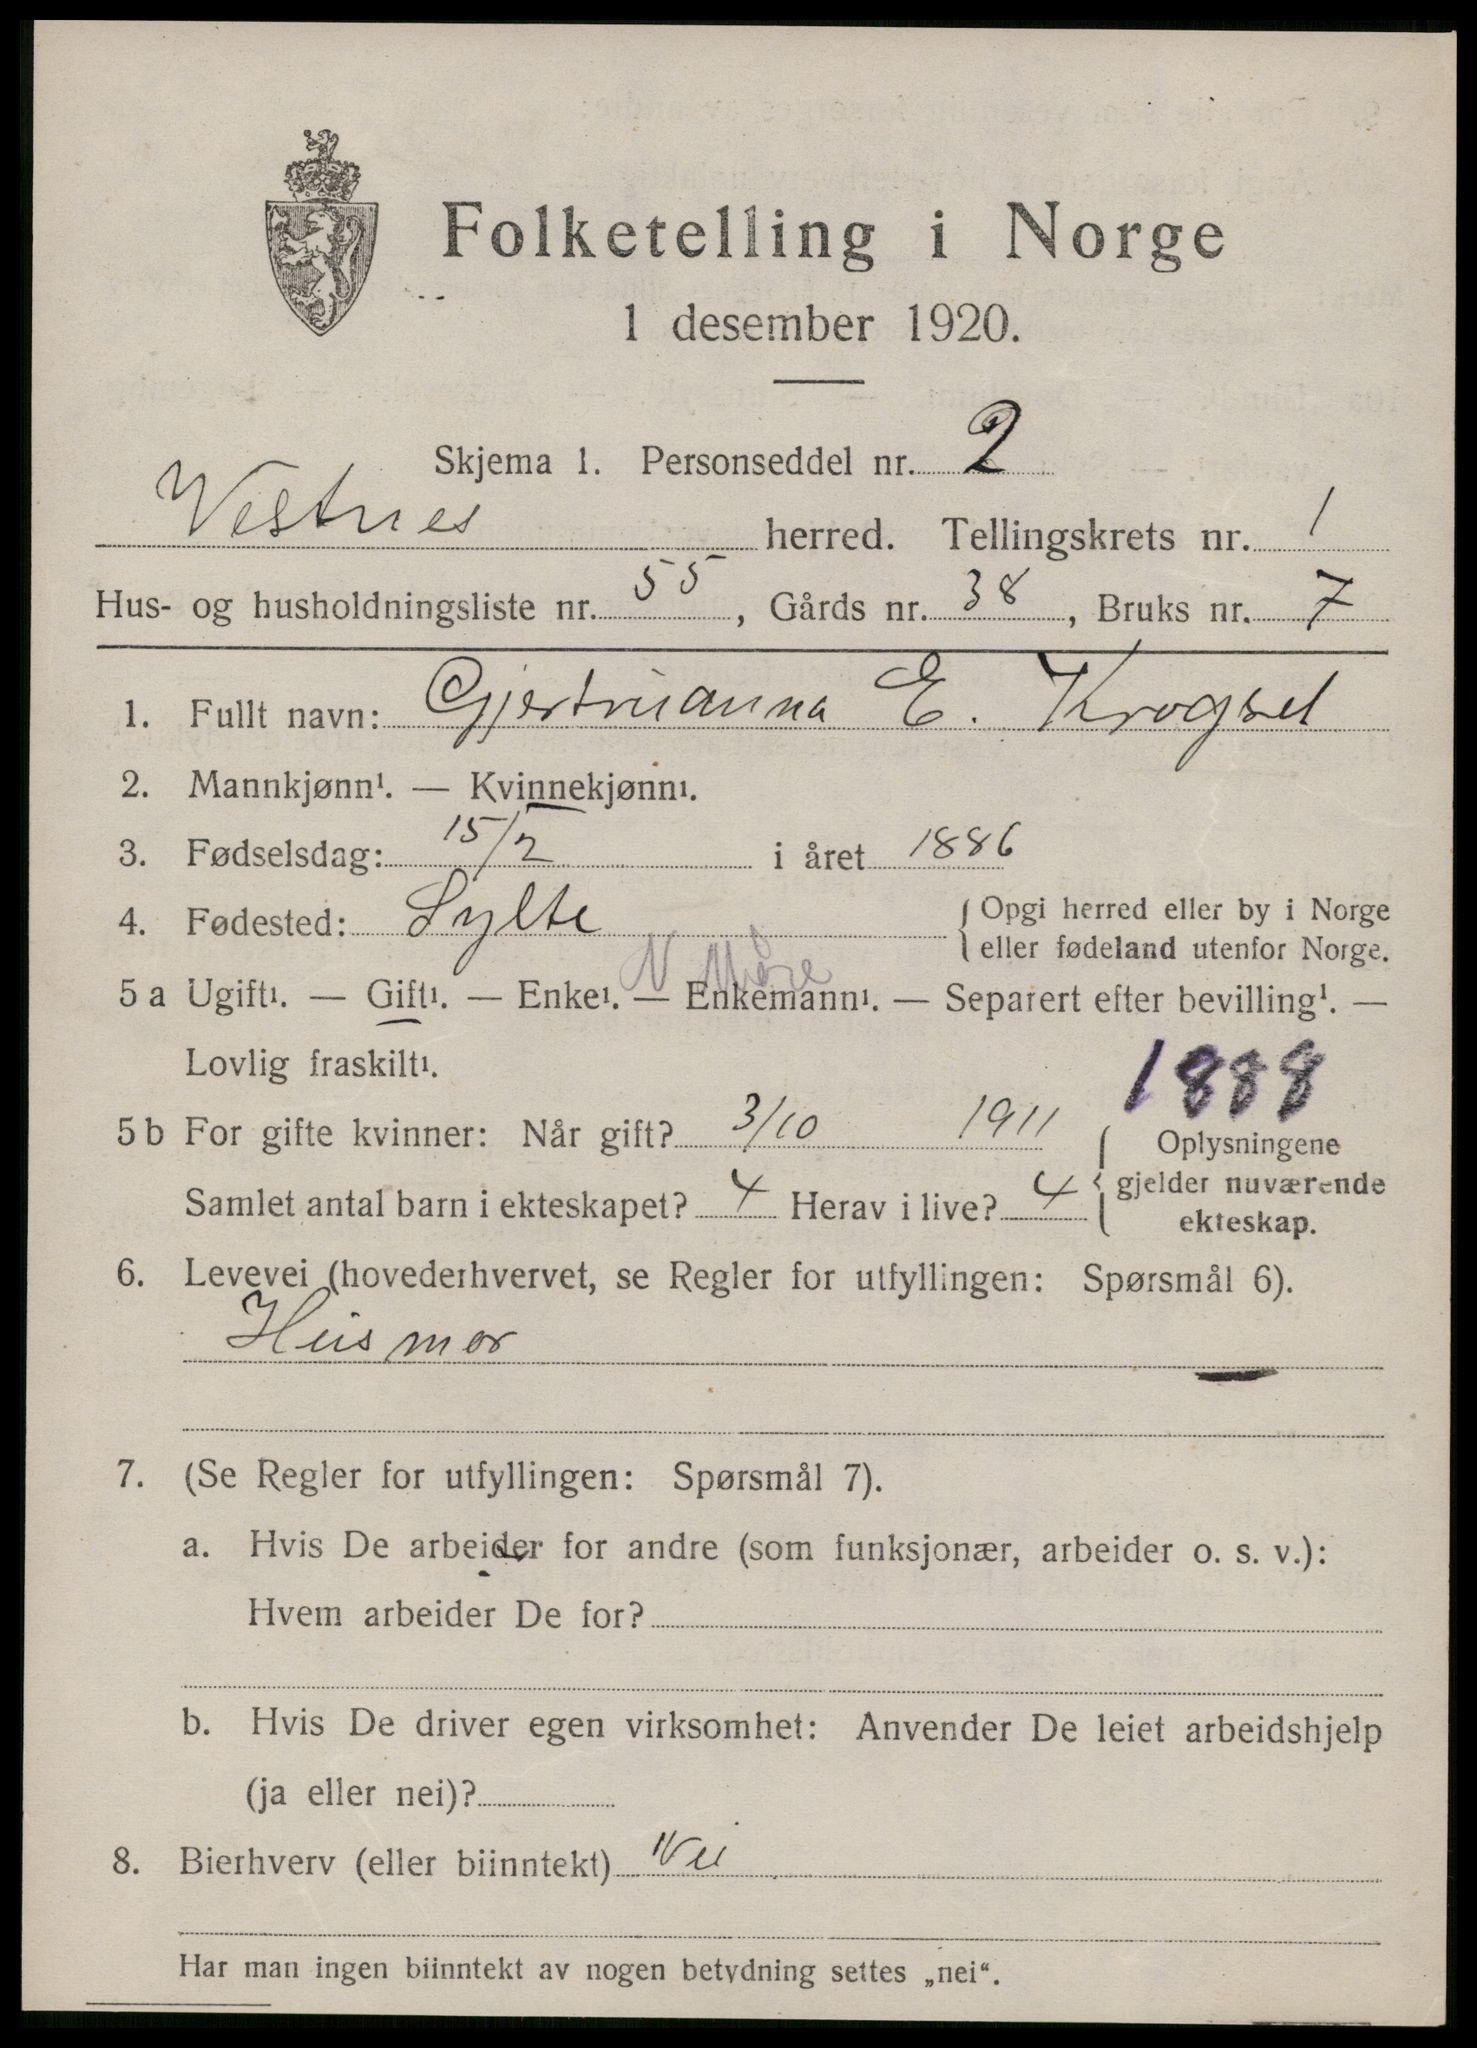 Folketelling i Norge
1 desember 1920.
Skjema 1. Personseddel nr. 2
Vestnes herred. Tellingskrets nr. 1
Hus- og husholdningsliste nr. 55, Gårds nr. 38, Bruks nr. 7
1. Fullt navn: Gjertruanna E. Krogset
2. Mannkjønn¹. — Kvinnekjønn¹.
3. Fødselsdag: 15/2 i året 1886
4. Fødested: Sylte { Opgi herred eller by i Norge
eller fødeland utenfor Norge.
N Møre
5 a Ugift¹. — Gift¹. — Enke¹. — Enkemann¹. — Separert efter bevilling¹. —
Lovlig fraskilt¹.
1888
5 b For gifte kvinner: Når gift? 3/10 1911
Samlet antal barn i ekteskapet? 4 Herav i live? 4
{ Oplysningene
gjelder nuværende
ekteskap.
6. Levevei (hovederhvervet, se Regler for utfyllingen: Spørsmål 6).
Husmor
7. (Se Regler for utfyllingen: Spørsmål 7).
a. Hvis De arbeider for andre (som funksjonær, arbeider o. s. v.):
Hvem arbeider De for?
b. Hvis De driver egen virksomhet: Anvender De leiet arbeidshjelp
(ja eller nei)?
8. Bierhverv (eller biinntekt) Nei
Har man ingen biinntekt av nogen betydning settes „nei“.